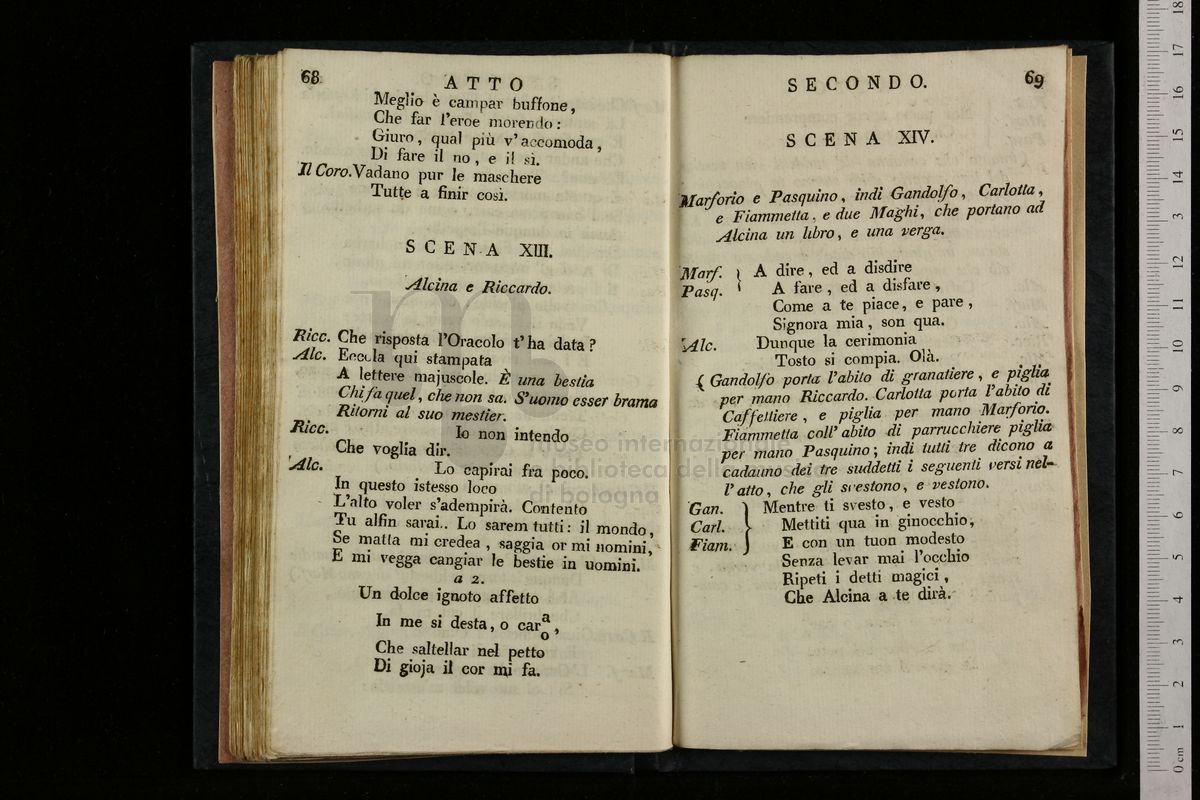 68
ATTO
Meglio è campar buffone,
Che far l'eroe morendo:
Giuro, qual più v'accomoda,
Di fare il no, e il sì.
Il Coro. Vadano pur le maschere
Tutte a finir così.
SCENA XIII.
Alcina e Riccardo.
Ricc. Che risposta l'Oracolo t'ha data?
Alc. Eccola qui stampata
A lettere majuscole. È una bestia
Chi fa quel, che non sa. S'uomo esser brama
Ritorni al suo mestier.
Ricc. Io non intendo
Che voglia dir.
Alc. Lo capirai fra poco.
In questo istesso loco
L'alto voler s'adempirà. Contento
Tu alfin sarai.. Lo sarem tutti: il mondo,
Se matta mi credea, saggia or mi nomini,
E mi vegga cangiar le bestie in uomini.
a 2.
Un dolce ignoto affetto
In me si desta, o car a o,
Che saltellar nel petto
Di gioja il cor mi fa.
SECONDO.
69
SCENA XIV.
Marforio e Pasquino, indi Gandolfo, Carlotta,
e Fiammetta, e due Maghi, che portano ad
Alcina un libro, e una verga.
Marf. } A dire, ed a disdire
Pasq. } A fare, ed a disfare,
Come a te piace, e pare,
Signora mia, son qua.
Alc. Dunque la cerimonia
Tosto si compia. Olà.
( Gandolfo porta l'abito di granatiere, e piglia
per mano Riccardo. Carlotta porta l'abito di
Caffettiere, e piglia per mano Marforio.
Fiammetta coll'abito di parrucchiere piglia
per mano Pasquino; indi tutti tre dicono a
cadauno dei tre suddetti i seguenti versi nel-
l'atto, che gli svestono, e vestono.
Gan. } Mentre ti svesto, e vesto
Carl. } Mettiti qua in ginocchio,
Fiam. } E con un tuon modesto
Senza levar mai l'occhio
Ripeti i detti magici,
Che Alcina a te dirà.
museo internazionale
biblioteca della musica
di bologna
0 cm 1 2 3 4 5 6 7 8 9 10 11 12 13 14 15 16 17 18